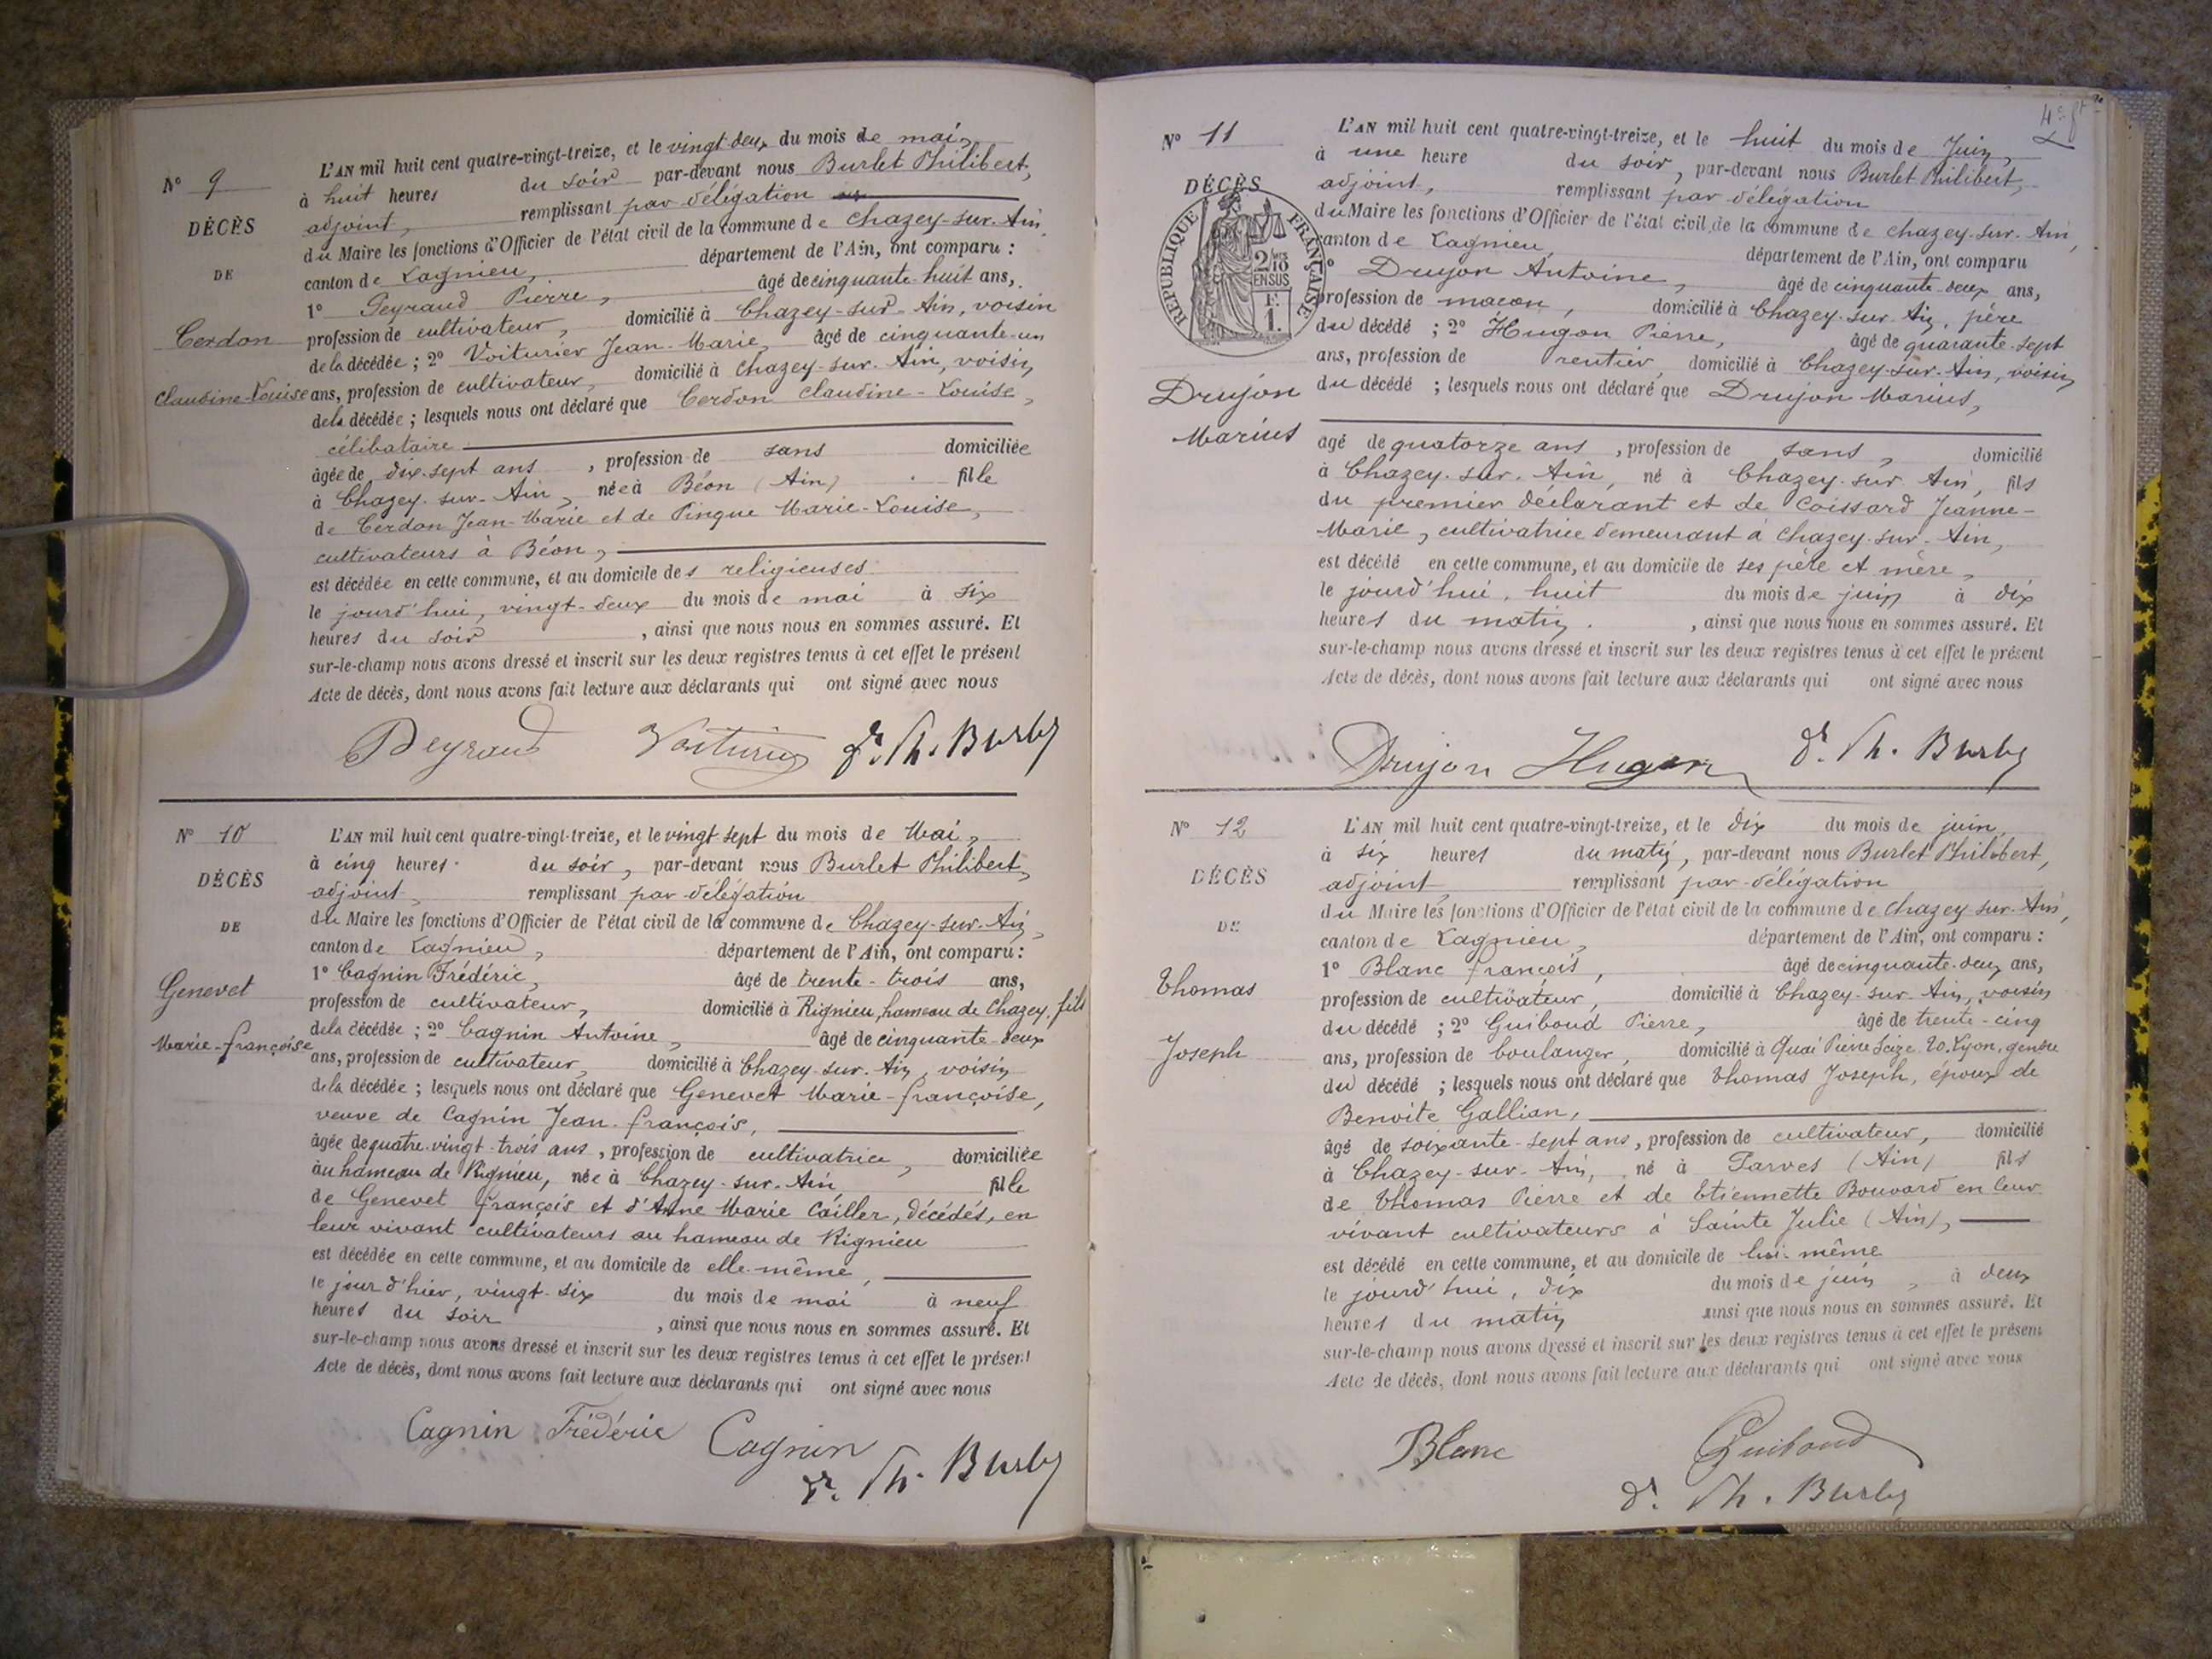 N° 9
DÉCÈS
DE
Cerdon
Claudine-Louise
L'AN mil huit cent quatre-vingt-treize, et le vingt deux du mois de mai,
à huit heures du soir par-devant nous Burlet Philibert,
adjoint, remplissant par délégation
du Maire les fonctions d'Officier de l'état civil de la commune de Chazey-sur-Ain,
canton de Lagnieu, département de l'Ain, ont comparu :
1° Peyraud Pierre, âgé de cinquante-huit ans,
profession de cultivateur, domicilié à Chazey-sur-Ain, voisin
de la décédée ; 2° Voiturier Jean-Marie, âgé de cinquante-un
ans, profession de cultivateur, domicilié à Chazey-sur-Ain, voisin
de la décédée ; lesquels nous ont déclaré que Cerdon Claudine-Louise,
célibataire
âgée de dix-sept ans, profession de sans domiciliée
à Chazey-sur-Ain, née à Béon (Ain) fille
de Cerdon Jean-Marie et de Pingue Marie-Louise,
cultivateurs à Béon,
est décédée en cette commune, et au domicile des religieuses
le jourd'hui, vingt-deux du mois de mai à six
heures du soir, ainsi que nous nous en sommes assuré. Et
sur-le-champ nous avons dressé et inscrit sur les deux registres tenus à cet effet le présent
Acte de décès, dont nous avons fait lecture aux déclarants qui ont signé avec nous
Peyraud Voiturier Ph. Burlet
N° 10
DÉCÈS
DE
Genevet
Marie-françoise
L'AN mil huit cent quatre-vingt-treize, et le vingt sept du mois de Mai,
à cinq heures du soir, par-devant nous Burlet Philibert,
adjoint, remplissant par délégation
du Maire les fonctions d'Officier de l'état civil de la commune de Chazey-sur-Ain,
canton de Lagnieu, département de l'Ain, ont comparu :
1° Cagnin Frédéric, âgé de trente-trois ans,
profession de cultivateur, domicilié à Rignieu, hameau de Chazey, fils
de la décédée ; 2° Cagnin Antoine, âgé de cinquante-deux
ans, profession de cultivateur, domicilié à Chazey-sur-Ain, voisin
de la décédée ; lesquels nous ont déclaré que Genevet Marie-françoise,
veuve de Cagnin Jean-françois,
âgée de quatre-vingt-trois ans, profession de cultivatrice, domiciliée
au hameau de Rignieu, née à Chazey-sur-Ain fille
de Genevet françois et d'Anne Marie Cailler, décédés, en
leur vivant cultivateurs au hameau de Rignieu
est décédée en cette commune, et au domicile de elle-même,
le jour d'hier, vingt-six du mois de mai à neuf
heures du soir, ainsi que nous nous en sommes assuré. Et
sur-le-champ nous avons dressé et inscrit sur les deux registres tenus à cet effet le présent
Acte de décès, dont nous avons fait lecture aux déclarants qui ont signé avec nous
Cagnin Frédéric Cagnin
Ph. Burlet
4e
N° 11
DÉCÈS
RÉPUBLIQUE FRANÇAISE
2/10
EN SUS
F.
1.
Drujon
Marius
L'AN mil huit cent quatre-vingt-treize, et le huit du mois de Juin,
à une heure du soir, par-devant nous Burlet Philibert,
adjoint, remplissant par délégation
du Maire les fonctions d'Officier de l'état civil de la commune de Chazey-sur-Ain,
canton de Lagnieu, département de l'Ain, ont comparu
1° Drujon Antoine, âgé de cinquante-deux ans,
profession de maçon, domicilié à Chazey-sur-Ain, père
du décédé ; 2° Hugon Pierre, âgé de quarante-sept
ans, profession de rentier, domicilié à Chazey-sur-Ain, voisin
du décédé ; lesquels nous ont déclaré que Drujon Marius,
âgé de quatorze ans, profession de sans, domicilié
à Chazey-sur-Ain, né à Chazey-sur-Ain, fils
du premier déclarant et de Coissard Jeanne-
Marie, cultivatrice demeurant à Chazey-sur-Ain,
est décédé en cette commune, et au domicile de ses père et mère,
le jourd'hui, huit du mois de juin à dix
heures du matin, ainsi que nous nous en sommes assuré. Et
sur-le-champ nous avons dressé et inscrit sur les deux registres tenus à cet effet le présent
Acte de décès, dont nous avons fait lecture aux déclarants qui ont signé avec nous
Drujon Hugon Ph. Burlet
N° 12
DÉCÈS
DE
Thomas
Joseph
L'AN mil huit cent quatre-vingt-treize, et le dix du mois de juin,
à six heures du matin, par-devant nous Burlet Philibert,
adjoint, remplissant par délégation
du Maire les fonctions d'Officier de l'état civil de la commune de Chazey-sur-Ain,
canton de Lagnieu, département de l'Ain, ont comparu :
1° Blanc françois, âgé de cinquante-deux ans,
profession de cultivateur, domicilié à Chazey-sur-Ain, voisin
du décédé ; 2° Guiboud Pierre, âgé de trente-cinq
ans, profession de boulanger, domicilié à Quai Pierre Scize 20. Lyon, gendre
du décédé ; lesquels nous ont déclaré que Thomas Joseph, époux de
Benoite Gallian,
âgé de soixante-sept ans, profession de cultivateur, domicilié
à Chazey-sur-Ain, né à Parves (Ain) fils
de Thomas Pierre et de Etiennette Bouvard en leur
vivant cultivateurs à Sainte Julie (Ain),
est décédé en cette commune, et au domicile de lui-même
le jourd'hui, dix du mois de juin, à deux
heures du matin ainsi que nous nous en sommes assuré. Et
sur-le-champ nous avons dressé et inscrit sur les deux registres tenus à cet effet le présent
Acte de décès, dont nous avons fait lecture aux déclarants qui ont signé avec nous
Blanc Guiboud
Ph. Burlet